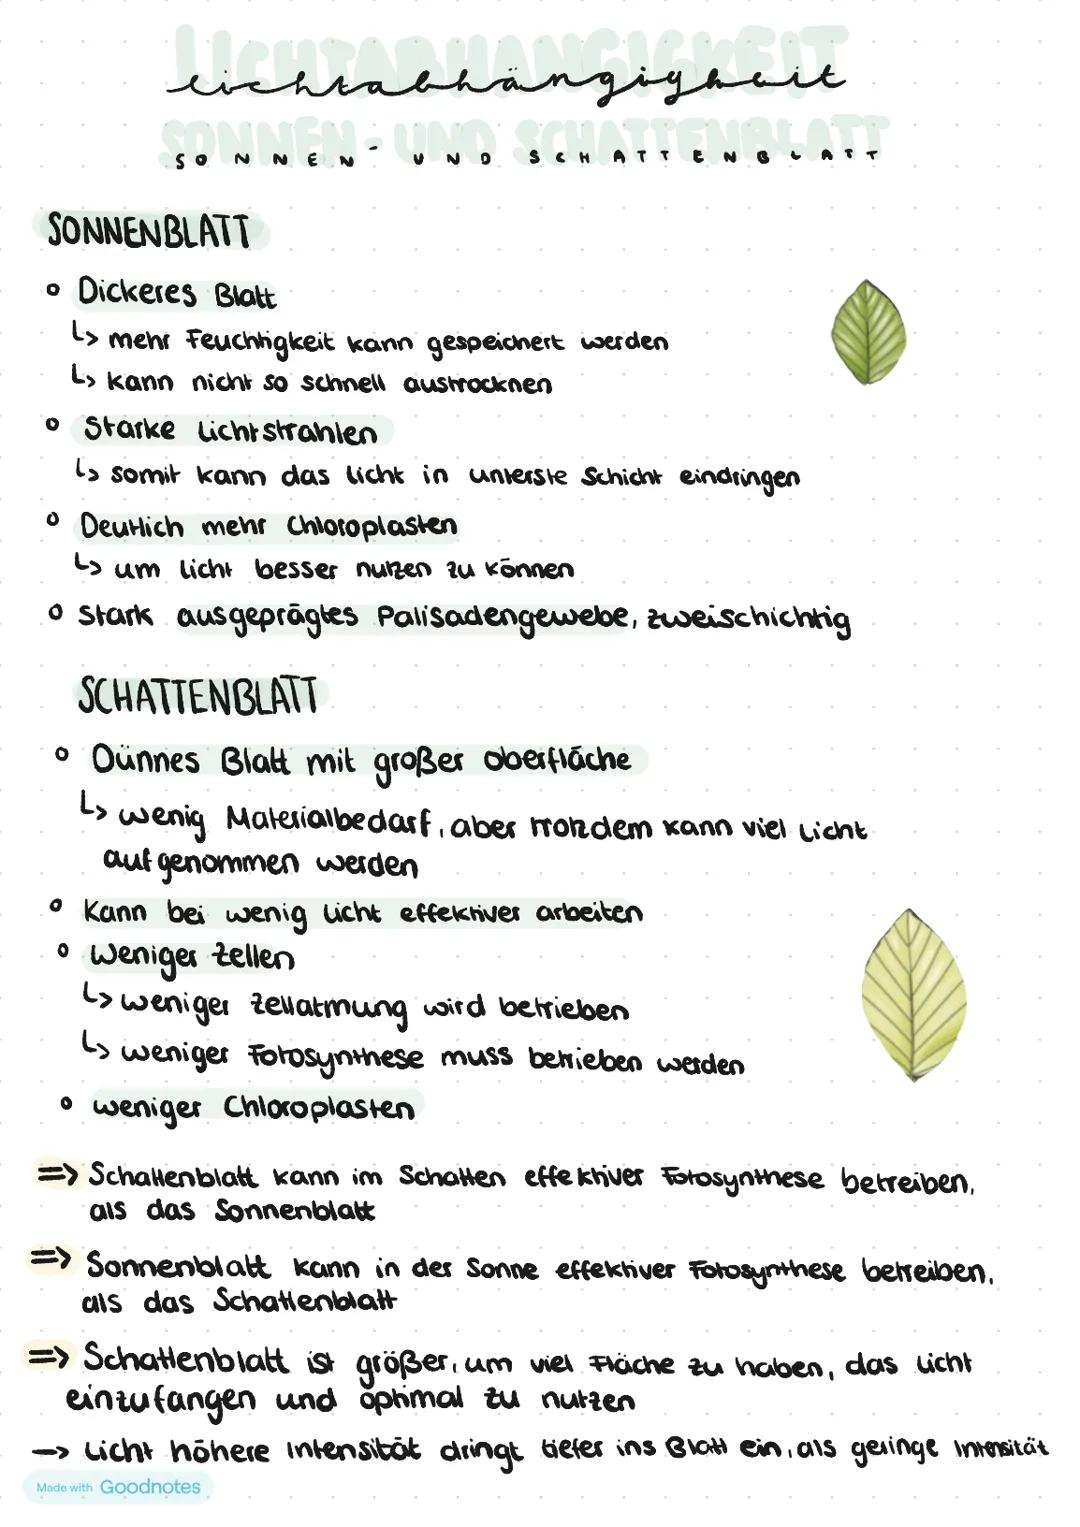 LICHTABHÄNGIGKEIT
lichtabhängigkeit
SONNEN- UND SCHATTENBLATT
SONNEN- UND SCHATTENBLATT
SONNENBLATT
° Dickeres Blatt
↳ mehr Feuchtigkeit kann gespeichert werden
↳ kann nicht so schnell austrocknen
° Starke Lichtstrahlen
↳ somit kann das Licht in unterste Schicht eindringen
° Deutlich mehr Chloroplasten
↳ um Licht besser nutzen zu können
° Stark ausgeprägtes Palisadengewebe, zweischichtig
SCHATTENBLATT
° Dünnes Blatt mit großer Oberfläche
↳ wenig Materialbedarf, aber trotzdem kann viel Licht
aufgenommen werden
° Kann bei wenig Licht effektiver arbeiten
° Weniger Zellen
↳ weniger Zellatmung wird betrieben
↳ weniger Fotosynthese muss betrieben werden
° weniger Chloroplasten
=> Schattenblatt kann im Schatten effektiver Fotosynthese betreiben,
als das Sonnenblatt
=> Sonnenblatt kann in der Sonne effektiver Fotosynthese betreiben,
als das Schattenblatt
=> Schattenblatt ist größer, um viel Fläche zu haben, das Licht
einzufangen und optimal zu nutzen
-> Licht höhere Intensität dringt tiefer ins Blatt ein, als geringe Intensität
Made with Goodnotes